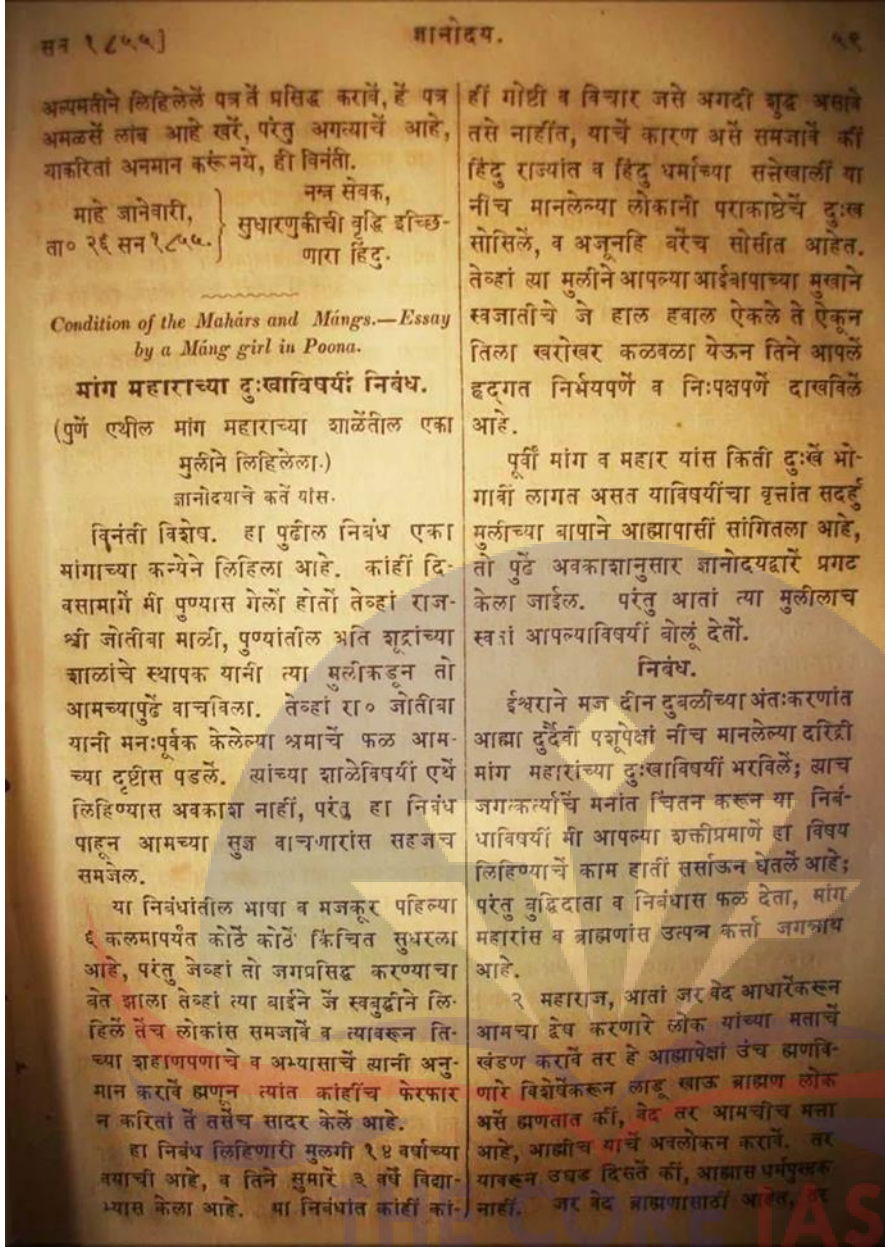 सन १८५५]
ज्ञानोदय.
५९
अल्पमतीने लिहिलेलें पत्र तें प्रसिद्ध करावें, हें पत्र
अमळसें लांब आहे खरें, परंतु अगत्याचें आहे,
याकरितां अनमान करूं नये, ही विनंती.
माहे जानेवारी,
ता० २६ सन १८५५.
नम्र सेवक,
सुधारणुकीची वृद्धि इच्छि-
णारा हिंदु.
Condition of the Mahárs and Mángs.—Essay
by a Máng girl in Poona.
मांग महाराच्या दुःखाविषयीं निबंध.
(पुणें एथील मांग महाराच्या शाळेंतील एका
मुलीने लिहिलेला.)
ज्ञानोदयाचे कर्ते यांस.
विनंती विशेष. हा पुढील निबंध एका
मांगाच्या कन्येने लिहिला आहे. कांहीं दि-
वसामागें मी पुण्यास गेलों होतों तेव्हां राज-
श्री जोतीबा माळी, पुण्यांतील अति शूद्रांच्या
शाळांचे स्थापक यानी त्या मुलीकडून तो
आमच्यापुढें वाचविला. तेव्हां रा० जोतीबा
यानी मनःपूर्वक केलेल्या श्रमाचें फळ आम-
च्या दृष्टीस पडलें. त्यांच्या शाळेविषयीं एथें
लिहिण्यास अवकाश नाहीं, परंतु हा निबंध
पाहून आमच्या सुज्ञ वाचणारांस सहजच
समजेल.
या निबंधांतील भाषा व मजकूर पहिल्या
६ कलमापर्यंत कोठें कोठें किंचित सुधरला
आहे, परंतु जेव्हां तो जगप्रसिद्ध करण्याचा
बेत झाला तेव्हां त्या बाईने जें स्वबुद्धीने लि-
हिलें तेंच लोकांस समजावें व त्यावरून ति-
च्या शहाणपणाचे व अभ्यासाचें त्यानी अनु-
मान करावें ह्मणून त्यांत कांहींच फेरफार
न करितां तें तसेंच सादर केलें आहे.
हा निबंध लिहिणारी मुलगी १४ वर्षाच्या
वयाची आहे, व तिने सुमारें ३ वर्षें विद्या-
भ्यास केला आहे. या निबंधांत कांहीं कां-
हीं गोष्टी व विचार जसे अगदी शुद्ध असावे
तसे नाहींत, याचें कारण असें समजावें कीं
हिंदु राज्यांत व हिंदु धर्माच्या सत्तेखालीं या
नीच मानलेल्या लोकानी पराकाष्ठेचें दुःख
सोसिलें, व अजूनहि बरेंच सोसीत आहेत.
तेव्हां त्या मुलीने आपल्या आईबापाच्या मुखाने
स्वजातीचे जे हाल हवाल ऐकले ते ऐकून
तिला खरोखर कळवळा येऊन तिने आपलें
हृद्गत निर्भयपणें व निःपक्षपणें दाखविलें
आहे.
पूर्वीं मांग व महार यांस किती दुःखें भो-
गावीं लागत असत याविषयींचा वृत्तांत सदर्हू
मुलीच्या बापाने आह्मापासीं सांगितला आहे,
तो पुढें अवकाशानुसार ज्ञानोदयद्वारें प्रगट
केला जाईल. परंतु आतां त्या मुलीलाच
स्वतां आपल्याविषयीं बोलूं देतों.
निबंध.
ईश्वराने मज दीन दुबळीच्या अंतःकरणांत
आह्मा दुर्दैवी पशूपेक्षां नीच मानलेल्या दरिद्री
मांग महारांच्या दुःखाविषयीं भरविलें; त्याच
जगत्कर्त्याचें मनांत चिंतन करून या निबं-
धाविषयीं मी आपल्या शक्तीप्रमाणें हा विषय
लिहिण्याचें काम हातीं सर्साऊन घेतलें आहे;
परंतु बुद्धिदाता व निबंधास फळ देता, मांग
महारांस व ब्राह्मणांस उत्पन्न कर्त्ता जगन्नाथ
आहे.
२ महाराज, आतां जर वेद आधारेंकरून
आमचा द्वेष करणारे लोक यांच्या मताचें
खंडण करावें तर हे आह्मापेक्षां उंच ह्मणवि-
णारे विशेषेंकरून लाडू खाऊ ब्राह्मण लोक
असें ह्मणतात कीं, वेद तर आमचीच मत्ता
आहे, आह्मीच याचें अवलोकन करावें. तर
यावरून उघड दिसतें कीं, आह्मास धर्मपुस्तक
नाहीं. जर वेद ब्राह्मणासाठीं आहेत, तर
THE CORE IAS